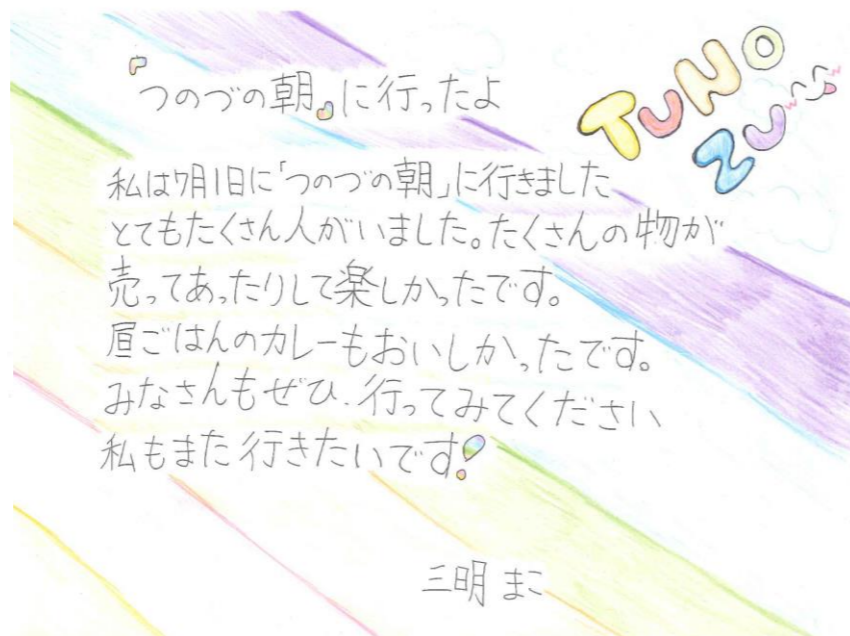 『つのづの朝』に行ったよ
TUNO
ZU
私は7月1日に「つのづの朝」に行きました
とてもたくさん人がいました。たくさんの物が
売ってあったりして楽しかったです。
昼ごはんのカレーもおいしかったです。
みなさんもぜひ、行ってみてください
私もまた行きたいです!
三明 まこ